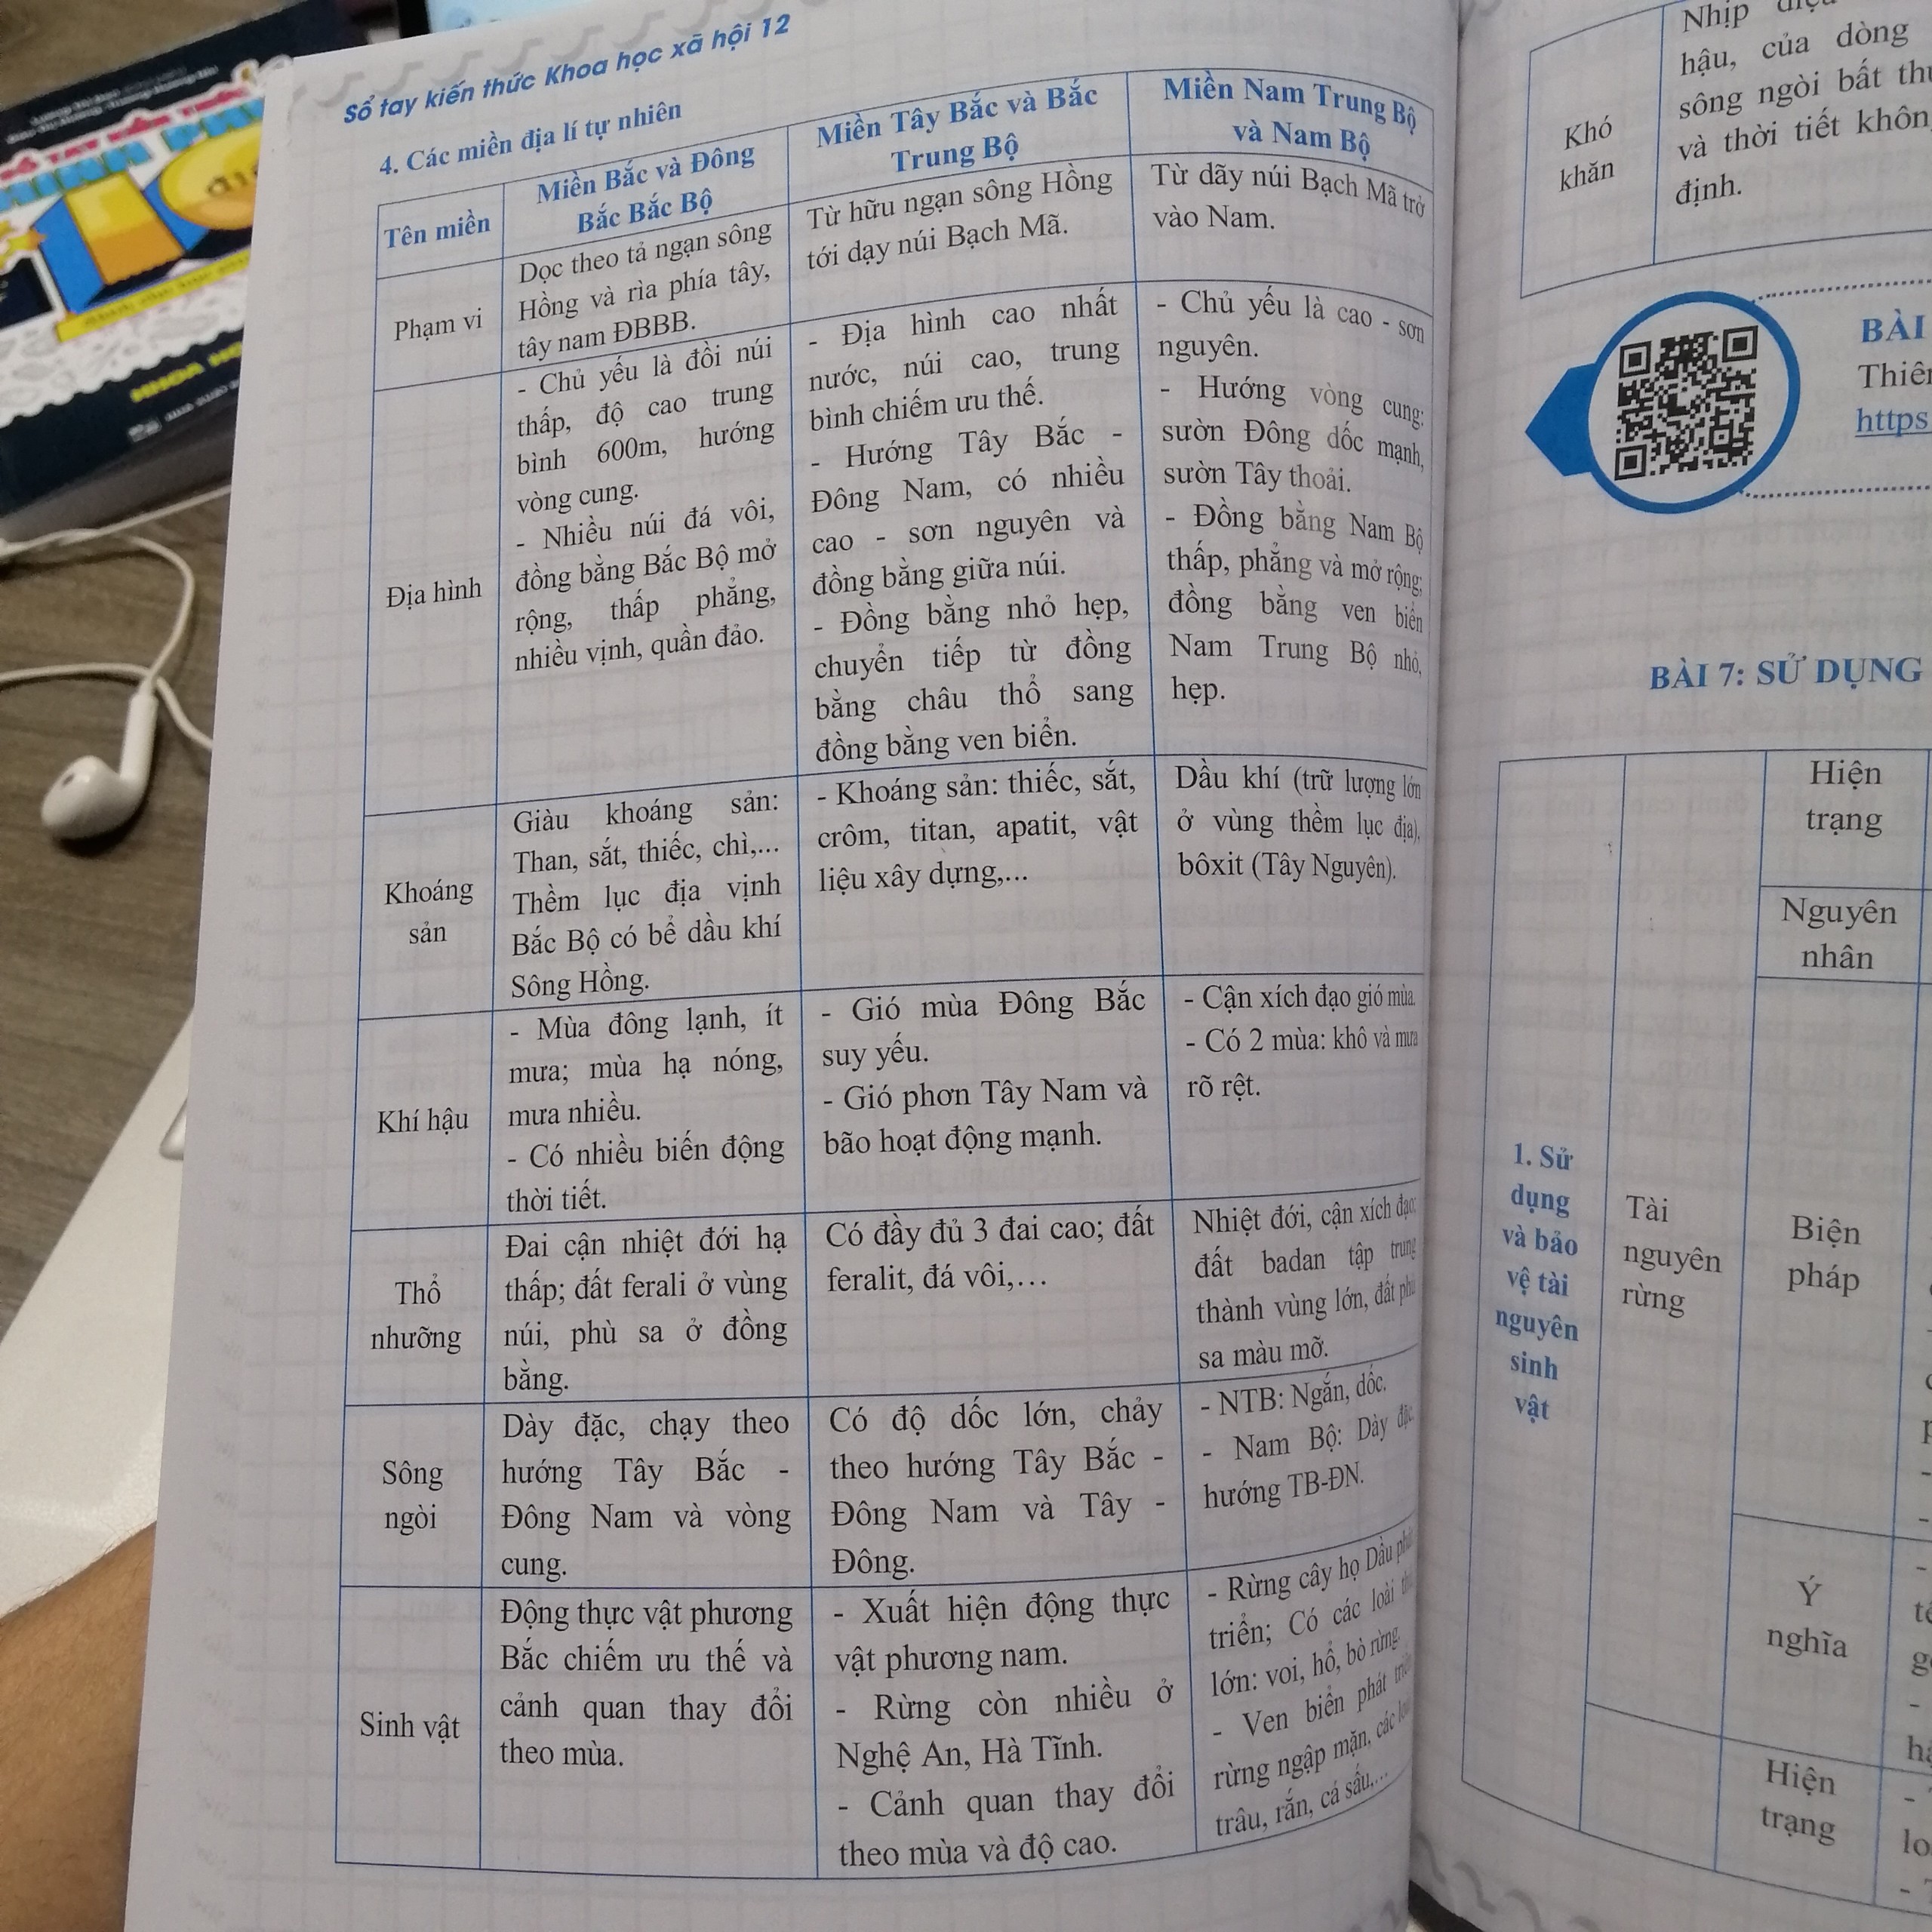 Sổ tay kiến thức Khoa học xã hội 12
4. Các miền địa lí tự nhiên
Tên miền
Miền Bắc và Đông
Bắc Bắc Bộ
Miền Tây Bắc và Bắc
Trung Bộ
Miền Nam Trung Bộ
và Nam Bộ
Phạm vi
Dọc theo tả ngạn sông
Hồng và rìa phía tây,
tây nam ĐBBB.
Từ hữu ngạn sông Hồng
tới dạy núi Bạch Mã.
Từ dãy núi Bạch Mã trở
vào Nam.
Địa hình
- Chủ yếu là đồi núi
thấp, độ cao trung
bình 600m, hướng
vòng cung.
- Nhiều núi đá vôi,
đồng bằng Bắc Bộ mở
rộng, thấp phẳng,
nhiều vịnh, quần đảo.
- Địa hình cao nhất
nước, núi cao, trung
bình chiếm ưu thế.
- Hướng Tây Bắc -
Đông Nam, có nhiều
cao - sơn nguyên và
đồng bằng giữa núi.
- Đồng bằng nhỏ hẹp,
chuyển tiếp từ đồng
bằng châu thổ sang
đồng bằng ven biển.
- Chủ yếu là cao - sơn
nguyên.
- Hướng vòng cung;
sườn Đông dốc mạnh,
sườn Tây thoải.
- Đồng bằng Nam Bộ
thấp, phẳng và mở rộng;
đồng bằng ven biển
Nam Trung Bộ nhỏ,
hẹp.
Khoáng
sản
Giàu khoáng sản:
Than, sắt, thiếc, chì,...
Thềm lục địa vịnh
Bắc Bộ có bể dầu khí
Sông Hồng.
- Khoáng sản: thiếc, sắt,
crôm, titan, apatit, vật
liệu xây dựng,...
Dầu khí (trữ lượng lớn
ở vùng thềm lục địa),
bôxit (Tây Nguyên).
Khí hậu
- Mùa đông lạnh, ít
mưa; mùa hạ nóng,
mưa nhiều.
- Có nhiều biến động
thời tiết.
- Gió mùa Đông Bắc
suy yếu.
- Gió phơn Tây Nam và
bão hoạt động mạnh.
- Cận xích đạo gió mùa.
- Có 2 mùa: khô và mưa
rõ rệt.
Thổ
nhưỡng
Đai cận nhiệt đới hạ
thấp; đất ferali ở vùng
núi, phù sa ở đồng
bằng.
Có đầy đủ 3 đai cao; đất
feralit, đá vôi,...
Nhiệt đới, cận xích đạo;
đất badan tập trung
thành vùng lớn, đất phù
sa màu mỡ.
Sông
ngòi
Dày đặc, chạy theo
hướng Tây Bắc -
Đông Nam và vòng
cung.
Có độ dốc lớn, chảy
theo hướng Tây Bắc -
Đông Nam và Tây -
Đông.
- NTB: Ngắn, dốc.
- Nam Bộ: Dày đặc,
hướng TB-ĐN.
Sinh vật
Động thực vật phương
Bắc chiếm ưu thế và
cảnh quan thay đổi
theo mùa.
- Xuất hiện động thực
vật phương nam.
- Rừng còn nhiều ở
Nghệ An, Hà Tĩnh.
- Cảnh quan thay đổi
theo mùa và độ cao.
- Rừng cây họ Dầu phát
triển; Có các loài thú
lớn: voi, hổ, bò rừng.
- Ven biển phát triển
rừng ngập mặn, các loài
trâu, rắn, cá sấu,...
Khó
khăn
Nhịp
hậu, của dòng
sông ngòi bất
và thời tiết
định.
BÀI
https
BÀI 7: SỬ DỤNG
1. Sử
dụng
và bảo
vệ tài
nguyên
sinh
vật
Tài
nguyên
rừng
Hiện
trạng
Nguyên
nhân
Biện
pháp
Ý
nghĩa
Hiện
trạng